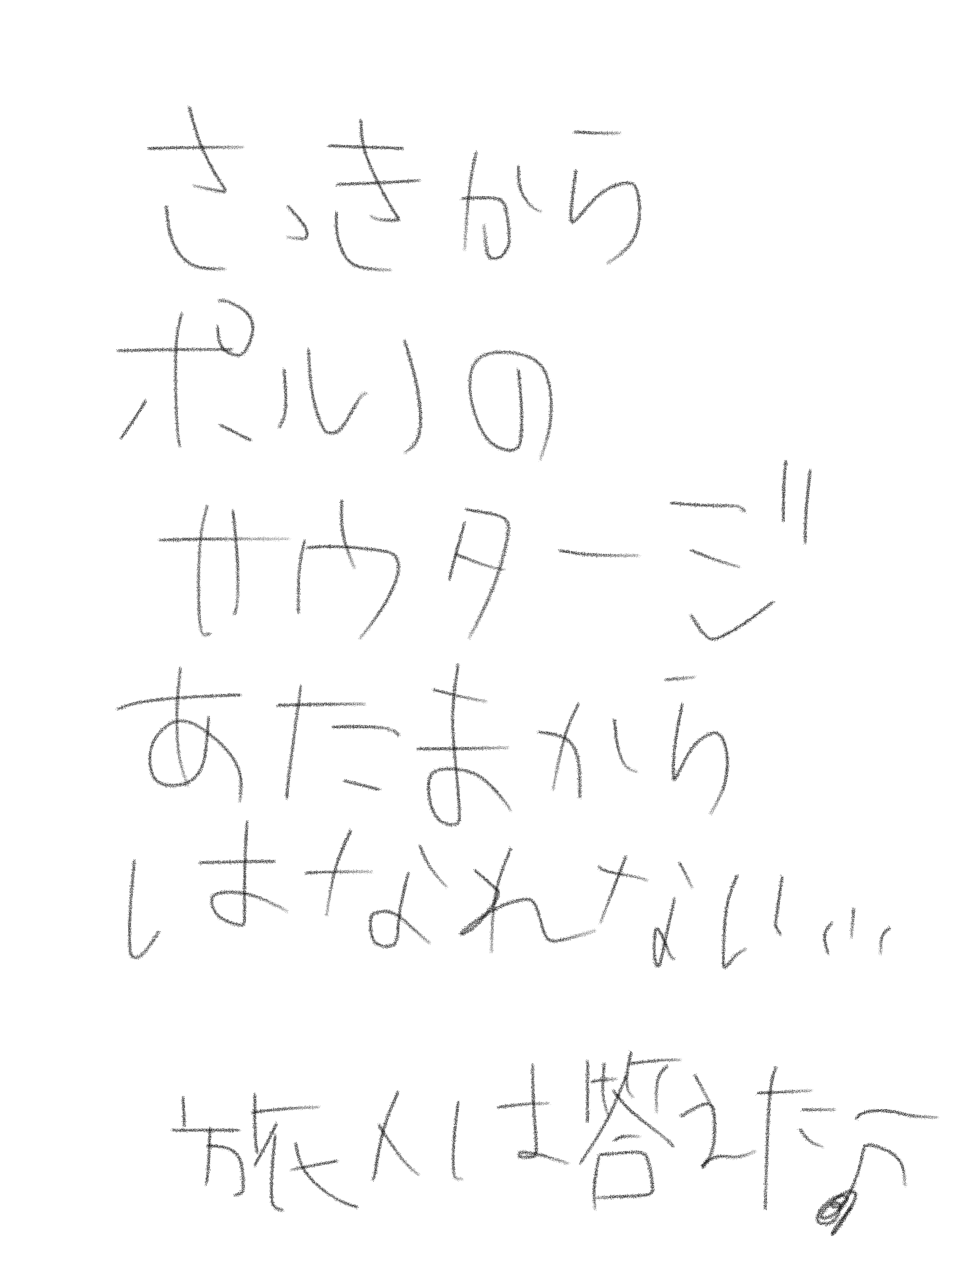 さっきから
ポルノの
サウダージ
あたまから
はなれない…
旅人は答えた♪